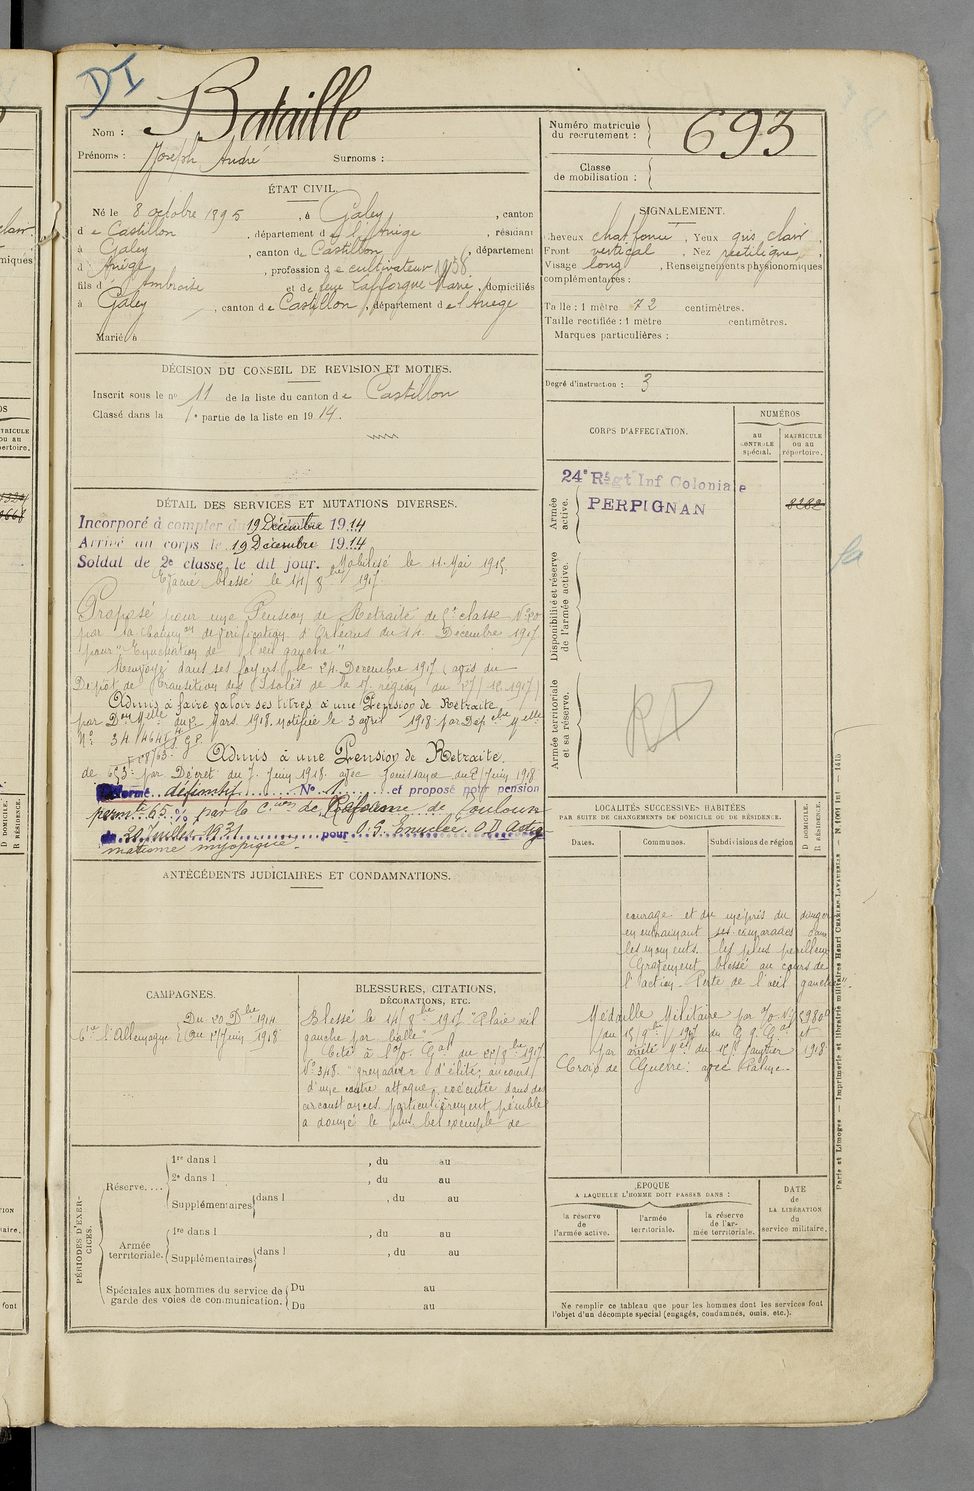 DI
Nom : Bataille
Prénoms : Joseph André Surnoms :
Numéro matricule
du recrutement : 693
Classe
de mobilisation :
ÉTAT CIVIL.
Né le 8 octobre 1895, à Galey, canton
de Castillon, département de l'Ariège, résidant
à Galey, canton de Castillon, département
d Ariège, profession de cultivateur
fils d'Ambroise et de feue Lafforgue Marie, domiciliés
à Galey, canton de Castillon, département de l'Ariège
Marié à
SIGNALEMENT.
Cheveux chat foncé, Yeux gris clair,
Front vertical, Nez rectiligne,
Visage long, Renseignements physionomiques
complémentaires :
Taille : 1 mètre 72 centimètres.
Taille rectifiée : 1 mètre centimètres.
Marques particulières :
Degré d'instruction : 3
DÉCISION DU CONSEIL DE REVISION ET MOTIFS.
Inscrit sous le no 11 de la liste du canton de Castillon
Classé dans la 1e partie de la liste en 1914.
CORPS D'AFFECTATION.
NUMÉROS
au
CONTROLE
spécial.
MATRICULE
ou au
répertoire.
24e Rgt Inf Coloniale
PERPIGNAN
8282
Armée
active.
Disponibilité et réserve
de l'armée active.
Armée territoriale
et sa réserve.
RD
DÉTAIL DES SERVICES ET MUTATIONS DIVERSES.
Incorporé à compter du 19 Décembre 1914
Arrivé au corps le 19 Décembre 1914
Soldat de 2e classe le dit jour. Mobilisé le 11 Mai 1915.
Evacué blessé le 14/8bre 1917.
Proposé pour une Pension de Retraite de 5e classe No 20
par la de vérification d'Orléans du 14 Decembre 1917
pour "Enucléation de l'œil gauche"
Renvoyé dans ses foyers le 24 Decembre 1917 (avis du
Depôt de Transition des Isolés de la région du 27/12 1917)
Admis à faire valoir ses titres à une Pension de Retraite
par Don Melle du Mars 1918. notifiée le 3 avril 1918 par Dep
No 34
Admis à une Pension de Retraite.
de 653f par Décret du 7 Juin 1918 avec Jouissance du 2 Juin 1918
Réformé définitif No 1 et proposé pour pension
permte 65 % par la Cion de Réforme de Toulouse
du 20 Juillet 1921 pour O.G. Enuclée. OD Astig-
matisme myopique.
ANTÉCÉDENTS JUDICIAIRES ET CONDAMNATIONS.
LOCALITÉS SUCCESSIVES HABITÉES
PAR SUITE DE CHANGEMENTS DE DOMICILE OU DE RÉSIDENCE.
Dates.
Communes.
Subdivisions de région
D DOMICILE.
R RÉSIDENCE.
CAMPAGNES.
Ctre l'Allemagne
Du 20 Dbre 1914
Au 1er Juin 1918
BLESSURES, CITATIONS,
DÉCORATIONS, ETC.
Blessé le 14/8bre 1917 "Plaie œil
gauche par balle"
Cité à l'O. Gal du 22/8bre 1917
No 348. "grenadier d'élite; au cours
d'une contre attaque, exécutée dans des
circonstances particulièrement pénibles
a donné le plus bel exemple de
courage et du mépris du danger
en entrainant ses camarades dans
les moments les plus perilleux
Grièvement blessé au cours de
l'action. Perte de l'œil gauche".
Médaille Militaire par O. No 5980
du 15/9bre 1917 du G.Q.Gal et
par arrêté du Janvier 1918
Croix de Guerre: avec Palme.
PÉRIODES D'EXERCICES.
Réserve....
1re dans l , du au
2e dans l , du au
Supplémentaires dans l , du au
Armée
territoriale.
1re dans l , du au
Supplémentaires dans l , du au
Spéciales aux hommes du service de
garde des voies de communication.
Du au
Du au
ÉPOQUE
A LAQUELLE L'HOMME DOIT PASSER DANS :
la réserve
de
l'armée active.
l'armée
territoriale.
la réserve
de l'ar-
mée territoriale.
DATE
de
LA LIBÉRATION
du
service militaire.
Ne remplir ce tableau que pour les hommes dont les services font
l'objet d'un décompte spécial (engagés, condamnés, omis, etc.).
Paris et Limoges. — Imprimerie et librairie militaires Henri CHARLES-LAVAUZELLE